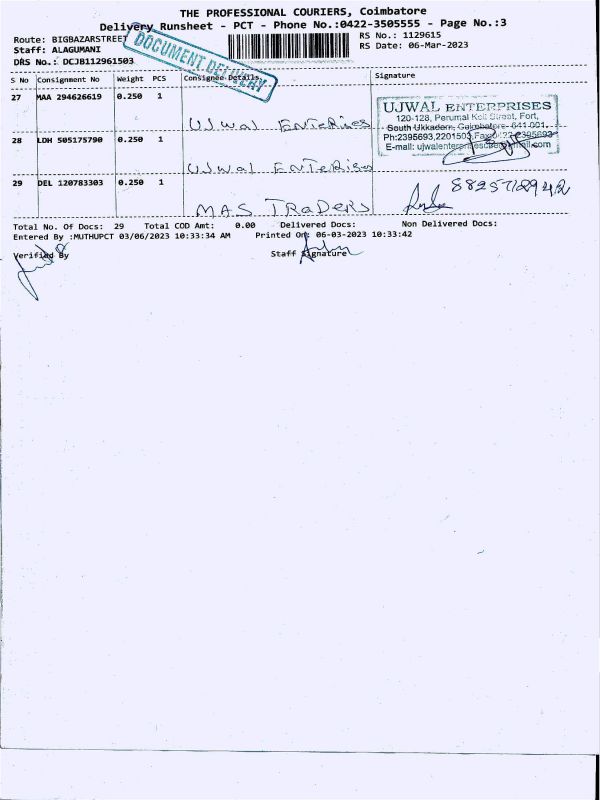 THE PROFESSIONAL COURIERS, Coimbatore
Delivery Runsheet - PCT - Phone No.:0422-3505555 - Page No.:3
Route: BIGBAZARSTREET
RS No.: 1129615
Staff: ALAGUMANI
RS Date: 06-Mar-2023
DRS No.: DCJB112961503
DOCUMENT DELIVERY
S No Consignment No Weight PCS Consignee Details Signature
27 MAA 294626619 0.250 1
Ujwal Enterises
28 LDH 505175790 0.250 1
Ujwal Enterises
29 DEL 120783303 0.250 1
MAS TRaDeRS
UJWAL ENTERPRISES
120-128, Perumal Koil Street, Fort,
South Ukkadam, Coimbatore- 641 001.
Ph:2395693,2201503
E-mail:
Total No. Of Docs: 29 Total COD Amt: 0.00 Delivered Docs: Non Delivered Docs:
Entered By :MUTHUPCT 03/06/2023 10:33:34 AM Printed On: 06-03-2023 10:33:42
Verified By Staff Signature